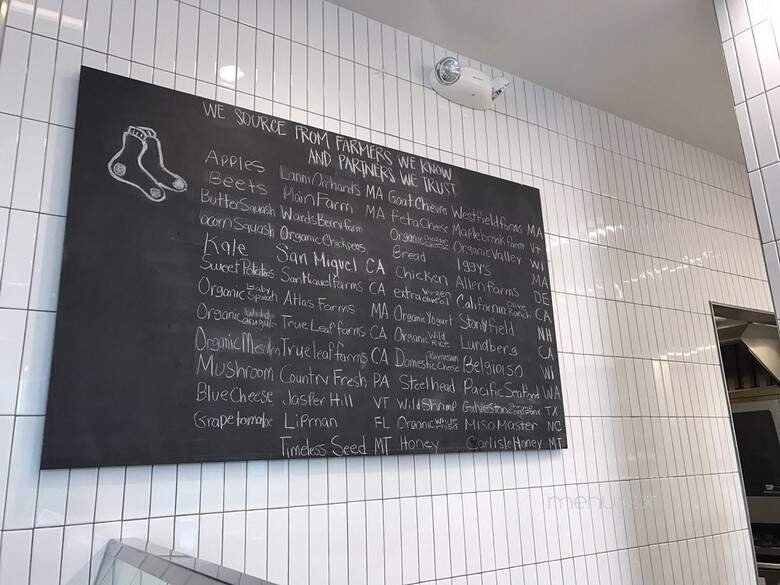 WE SOURCE FROM FARMERS WE KNOW
AND PARTNERS WE TRUST
Apples Lanni Orchards MA Goat Chevre Westfield farms MA
Beets Plain Farm MA Feta Cheese Maplebrook Farm VT
Butter Squash Wards Berry farm Organic Cheese Organic Valley WI
acorn Squash Organic Chickpeas Bread Iggy's MA
Kale San Miguel CA Chicken Allen Farms DE
Sweet Potatoes San Miguel farms CA extra Virgen olive oil California Olive Ranch CA
Organic Baby Spinach Atlas Farms MA Organic Yogurt Stonyfield NH
Organic Wild arugula True Leaf farms CA Organic Wild Rice Lundberg CA
Organic Mesclun True leaf farms CA Domestic Parmesan Cheese Belgioiso WI
Mushroom Country Fresh PA Steelhead Pacific Seafood WA
Blue Cheese Jasper Hill VT Wild Shrimp Galvestone TX
Grape tomatoe Lipman FL Organic White Miso Master NC
Timeless Seed MT Honey Carlisle Honey MT
menu